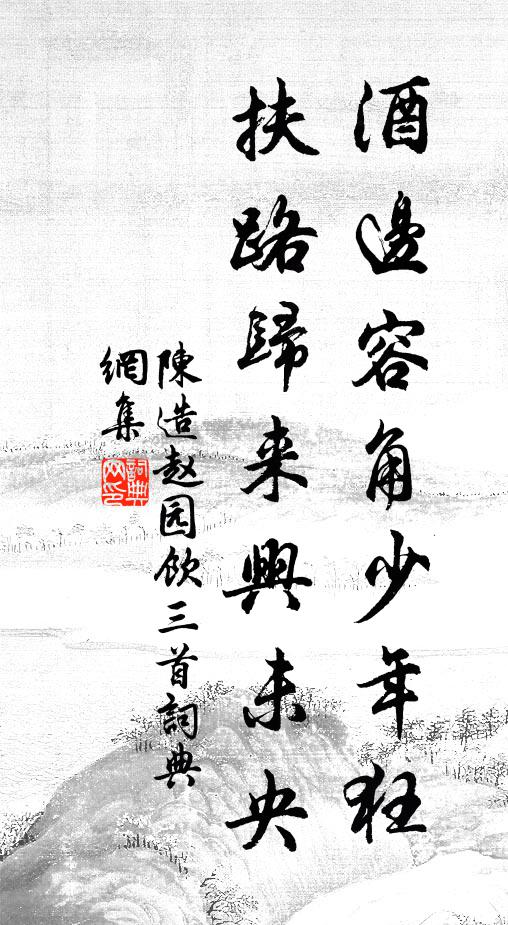 酒邊容角少年狂
扶路歸来興未央
陳造赵园飲三首詞典
網集
詞典网印